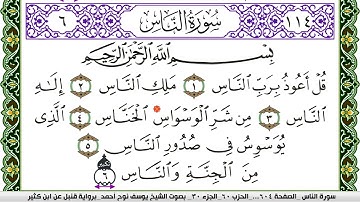 ١١٤ سُورَةُ النَّاسِ ٦
بِسْمِ اللَّهِ الرَّحْمَٰنِ الرَّحِيمِ
قُلْ أَعُوذُ بِرَبِّ النَّاسِ ١ مَلِكِ النَّاسِ ٢ إِلَٰهِ
النَّاسِ ٣ مِن شَرِّ الْوَسْوَاسِ الْخَنَّاسِ ٤ الَّذِي
يُوَسْوِسُ فِي صُدُورِ النَّاسِ ٥
مِنَ الْجِنَّةِ وَالنَّاسِ ٦
سورة الناس _ الصفحة ٦٠٤ _ الحزب ٦٠ _ الجزء ٣٠ _ بصوت الشيخ يوسف نوح أحمد _ برواية قنبل عن ابن كثير